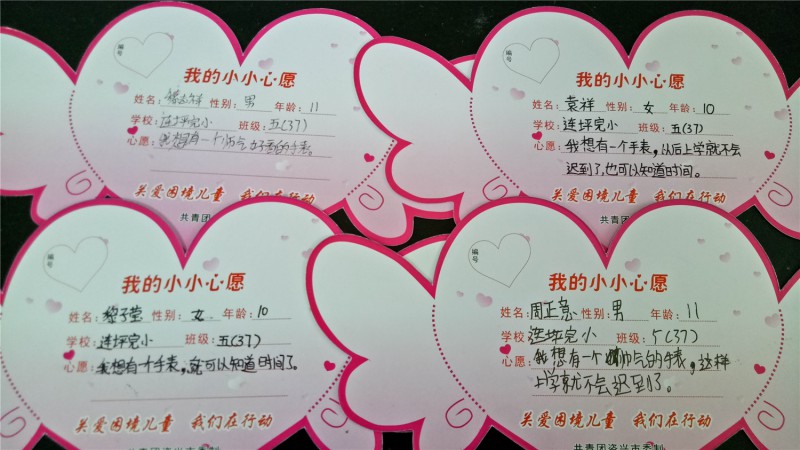 编号
我的小小心愿
姓名: 志祥 性别: 男 年龄: 11
学校: 连坪完小 班级: 五(37)
心愿: 我想有一个帅气好看的手表。
关爱困境儿童 我们在行动
共青团
编号
我的小小心愿
姓名: 袁祥 性别: 女 年龄: 10
学校: 连坪完小 班级: 五(37)
心愿: 我想有一个手表,以后上学就不会
迟到了,也可以知道时间。
关爱困境儿童 我们在行动
共青团
编号
我的小小心愿
姓名: 黎子莹 性别: 女 年龄: 10
学校: 连坪完小 班级: 五(37)
心愿: 我想有一个手表,就可以知道时间了。
关爱困境儿童 我们在行动
编号
我的小小心愿
姓名: 周正意 性别: 男 年龄: 11
学校: 连坪完小 班级: 5(37)
心愿: 我想有一个帅气的手表,这样
上学就不会迟到了。
关爱困境儿童 我们在行动
共青团资兴市委制